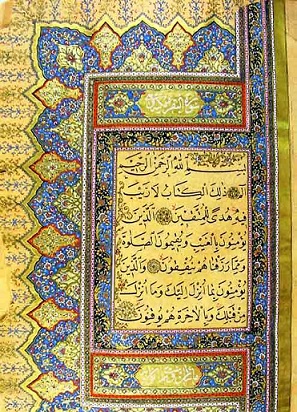 بِسْمِ اللهِ الرَّحْمٰنِ الرَّحِيمِ
الٓمٓ ذٰلِكَ الْكِتَابُ لَا رَيْبَ
فِيهِ هُدًى لِلْمُتَّقِينَ الَّذِينَ
يُؤْمِنُونَ بِالْغَيْبِ وَيُقِيمُونَ الصَّلٰوةَ
وَمِمَّا رَزَقْنَاهُمْ يُنْفِقُونَ وَالَّذِينَ
يُؤْمِنُونَ بِمَا أُنْزِلَ إِلَيْكَ وَمَا أُنْزِلَ
مِنْ قَبْلِكَ وَبِالْآخِرَةِ هُمْ يُوقِنُونَ